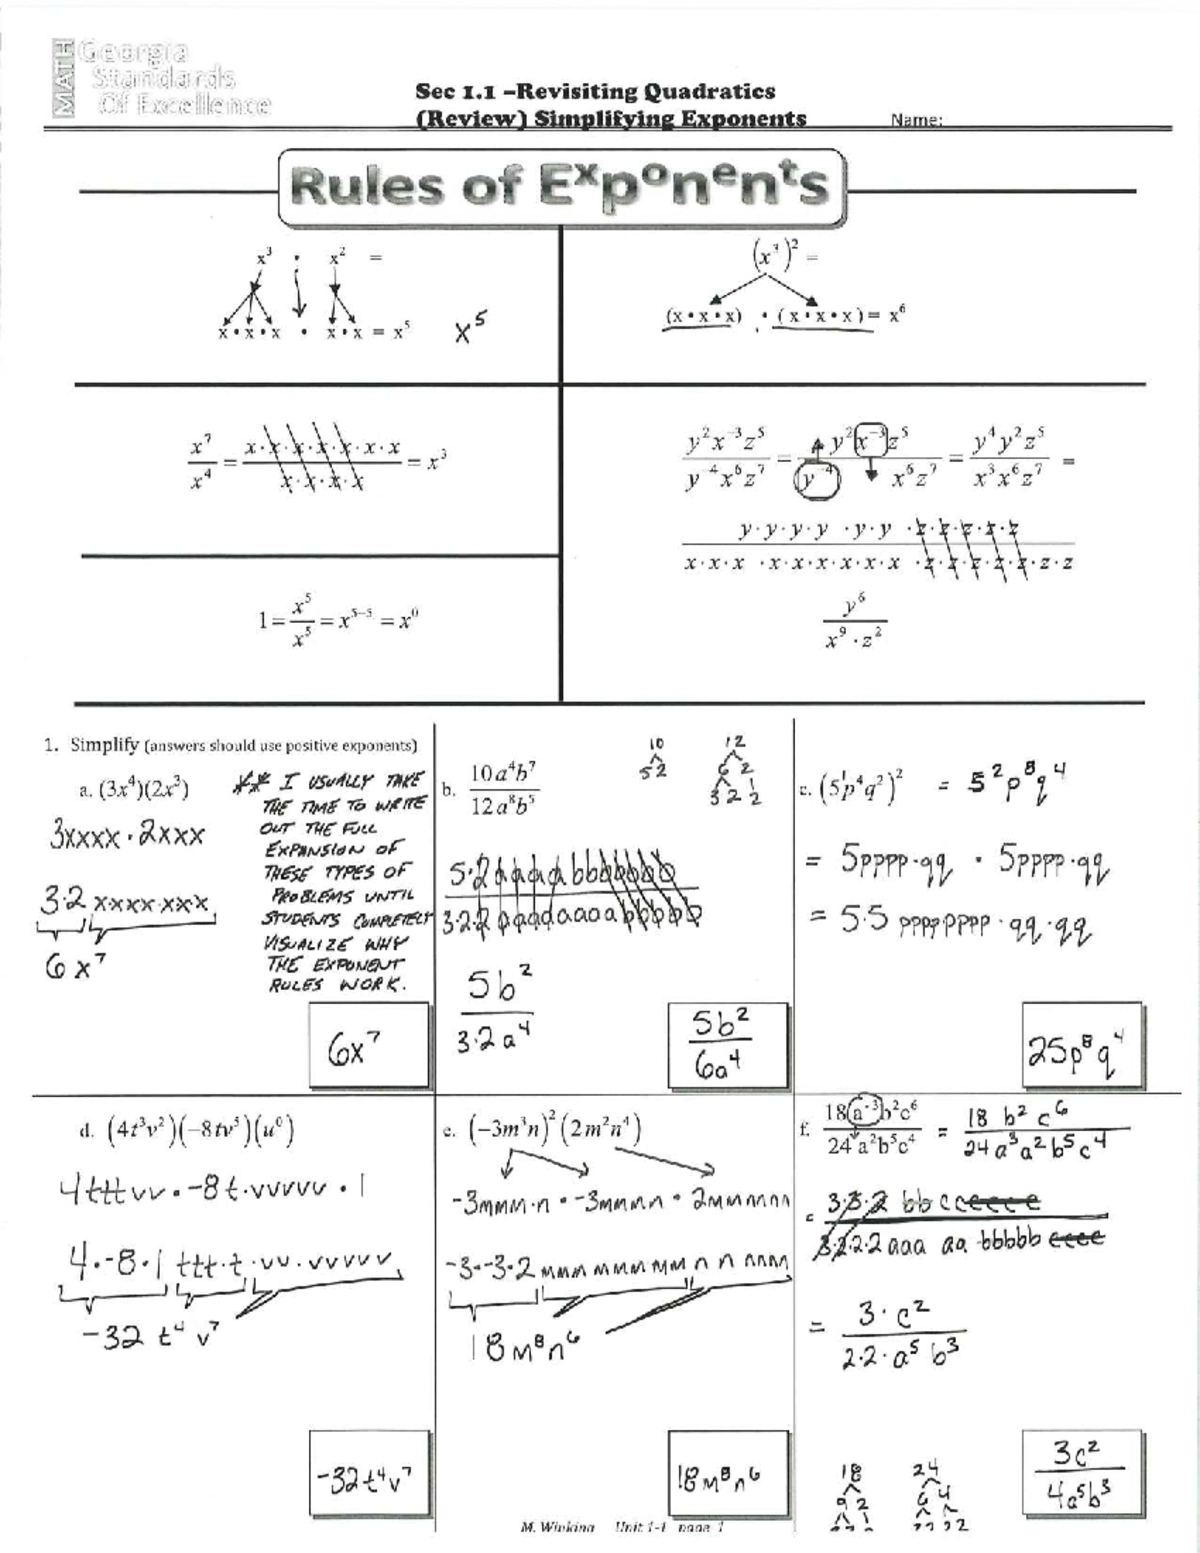 MATH
Georgia
Standards
Of Excellence
Sec 1.1 –Revisiting Quadratics
(Review) Simplifying Exponents
Name:
Rules of Exponents
x³ · x² =
x•x•x • x•x = x⁵ x⁵
(x³)² =
(x•x•x) • (x•x•x) = x⁶
x⁷/x⁴ = x·x·x·x·x·x·x / x·x·x·x = x³
y²x⁻³z⁵ / y⁻⁴x⁶z⁷ = y²x⁻³z⁵ / y⁻⁴ x⁶z⁷ = y⁴y²z⁵ / x³x⁶z⁷ =
y·y·y·y ·y·y ·z·z·z·z·z
x·x·x ·x·x·x·x·x·x ·z·z·z·z·z·z·z
y⁶ / x⁹·z²
1 = x⁵/x⁵ = x⁵⁻⁵ = x⁰
1. Simplify (answers should use positive exponents)
a. (3x⁴)(2x³)
3xxxx · 2xxx
3·2 x·x·x·x·x·x·x
6x⁷
** I USUALLY TAKE
THE TIME TO WRITE
OUT THE FULL
EXPANSION OF
THESE TYPES OF
PROBLEMS UNTIL
STUDENTS COMPLETELY
VISUALIZE WHY
THE EXPONENT
RULES WORK.
6x⁷
b. 10a⁴b⁷ / 12a⁸b⁵
10
5 2
12
6 2
3 2 2
5·2 a a a a b b b b b b b
3·2·2 a a a a a a a a b b b b b
5b² / 3·2a⁴
5b² / 6a⁴
c. (5¹p⁴q²)² = 5²p⁸q⁴
= 5pppp·qq · 5pppp·qq
= 5·5 pppp pppp·qq·qq
25p⁸q⁴
d. (4t³v²)(−8tv⁵)(u⁰)
4tttvv · -8t·vvvvv · 1
4·-8·1 ttt·t·vv·vvvvv
-32 t⁴ v⁷
-32t⁴v⁷
e. (−3m³n)²(2m²n⁴)
-3mmm·n · -3mmm n · 2mmnnnn
-3·-3·2 mmm mmm mm n n nnnn
18m⁸n⁶
18m⁸n⁶
f. 18a⁻³b²c⁶ / 24a²b⁵c⁴ = 18 b² c⁶ / 24a³a²b⁵c⁴
= 3·3·2 bb cccccc / 3·2·2·2 aaa aa bbbbb cccc
= 3·c² / 2·2·a⁵ b³
18
9 2
24
6 4
3c² / 4a⁵b³
M. Winking Unit 1-1 page 1